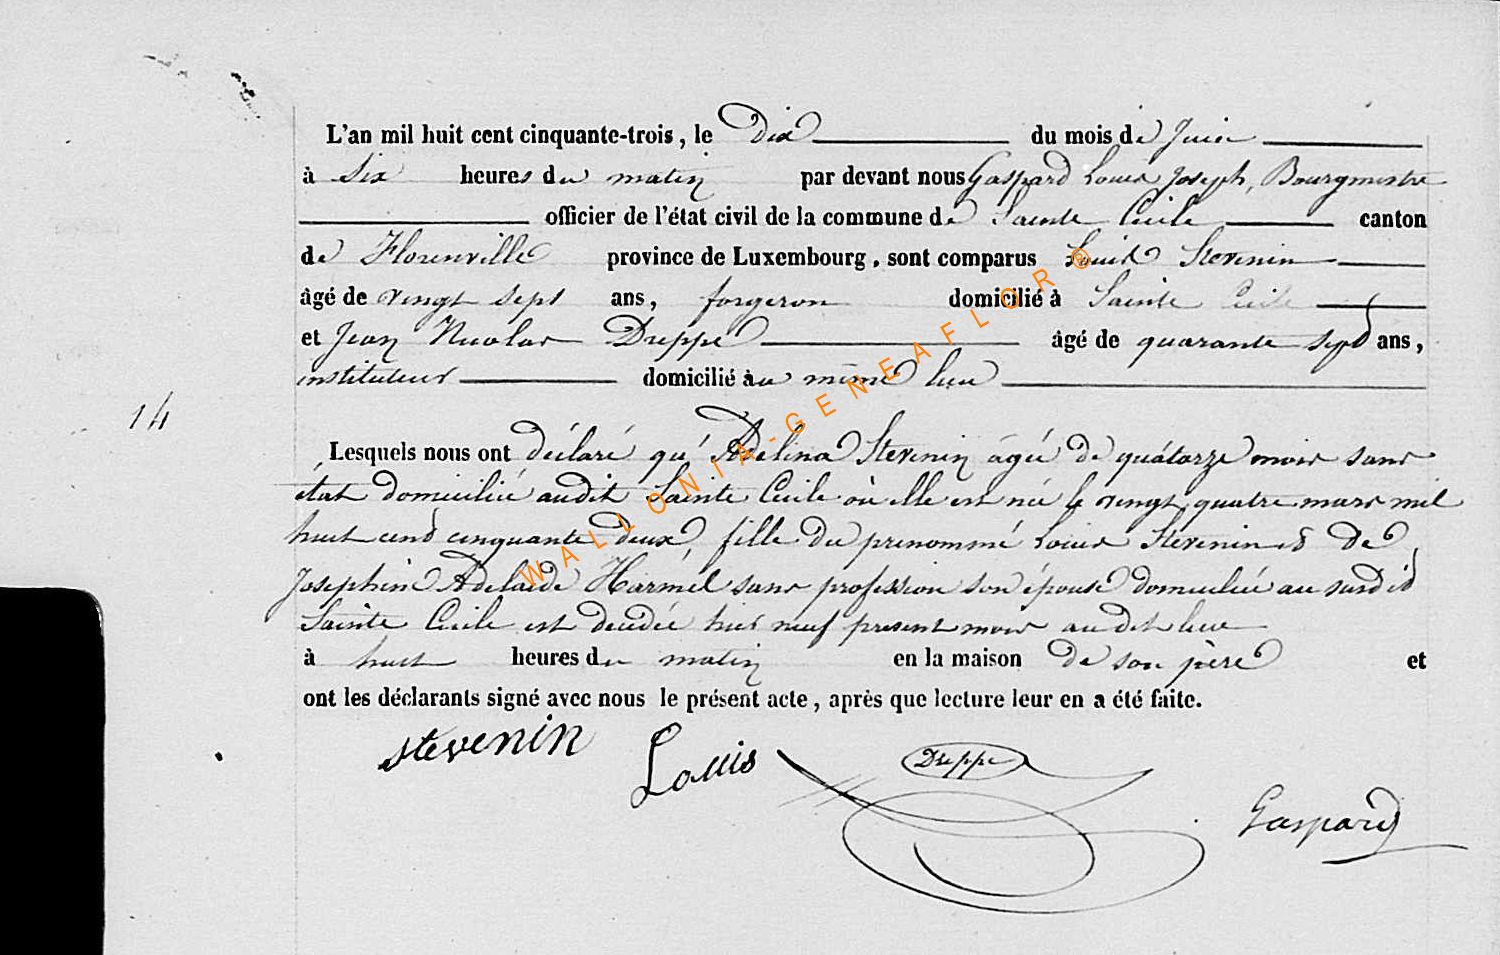 L'an mil huit cent cinquante-trois, le Dix du mois de Juin
à Six heures du matin par devant nous Gaspard Louis Joseph, Bourgmestre
officier de l'état civil de la commune de Sainte Cécile canton
de Florenville province de Luxembourg, sont comparus Louis Stevenin
âgé de vingt sept ans, forgeron domicilié à Sainte Cécile
et Jean Nicolas Dreppe âgé de quarante sept ans,
instituteur domicilié au même lieu
14
Lesquels nous ont déclaré qu'Adelina Stevenin âgée de quatorze mois sans
état domiciliée audit Sainte Cécile où elle est née le vingt quatre mars mil
huit cent cinquante deux, fille du prénommé Louis Stevenin et de
Joséphine Adelaïde Harmel sans profession son épouse domiciliée au susdit
Sainte Cécile est décédée hier neuf présent mois audit lieu
à huit heures du matin en la maison de son père et
ont les déclarants signé avec nous le présent acte, après que lecture leur en a été faite.
stevenin Louis Dreppe
Gaspard
WALLONIA-GENEAFLOR©